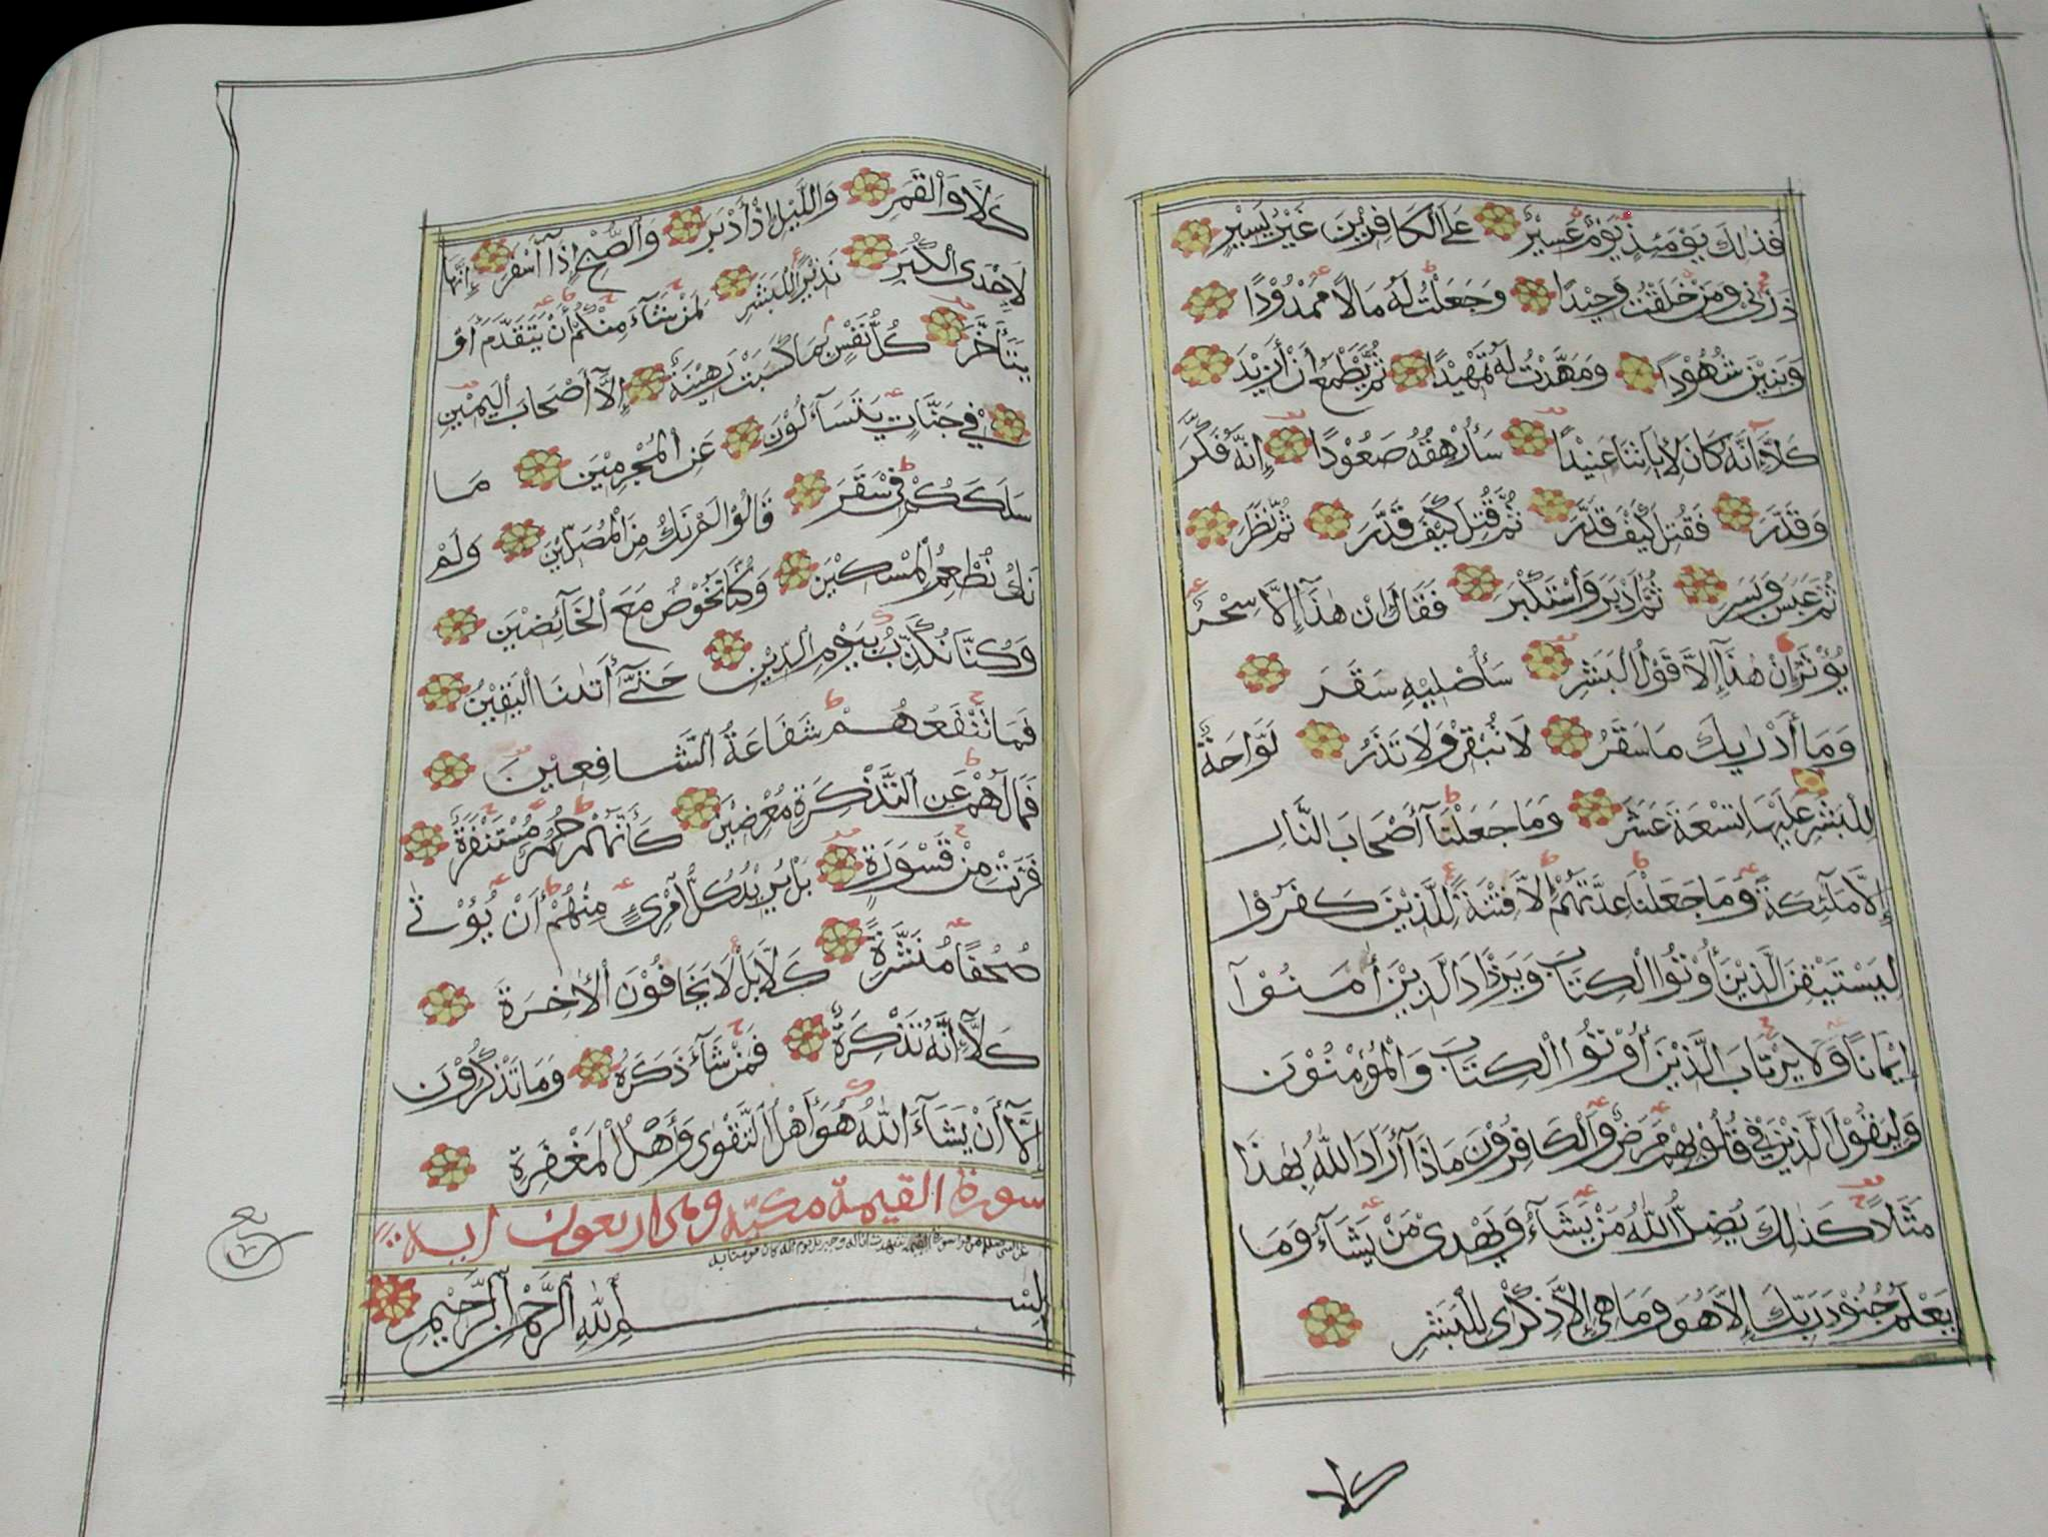 فَذٰلِكَ يَوْمَئِذٍ يَوْمٌ عَسِيْرٌ عَلَى الْكَافِرِيْنَ غَيْرُ يَسِيْرٍ
ذَرْنِي وَمَنْ خَلَقْتُ وَحِيْدًا وَجَعَلْتُ لَهُ مَالًا مَمْدُوْدًا
وَبَنِيْنَ شُهُوْدًا وَمَهَّدْتُ لَهُ تَمْهِيْدًا ثُمَّ يَطْمَعُ أَنْ أَزِيْدَ
كَلَّا إِنَّهُ كَانَ لِأٰيَاتِنَا عَنِيْدًا سَأُرْهِقُهُ صَعُوْدًا إِنَّهُ فَكَّرَ
وَقَدَّرَ فَقُتِلَ كَيْفَ قَدَّرَ ثُمَّ قُتِلَ كَيْفَ قَدَّرَ ثُمَّ نَظَرَ
ثُمَّ عَبَسَ وَبَسَرَ ثُمَّ أَدْبَرَ وَاسْتَكْبَرَ فَقَالَ إِنْ هٰذَا إِلَّا سِحْرٌ
يُؤْثَرُ إِنْ هٰذَا إِلَّا قَوْلُ الْبَشَرِ سَأُصْلِيْهِ سَقَرَ
وَمَا أَدْرٰيكَ مَا سَقَرُ لَا تُبْقِيْ وَلَا تَذَرُ لَوَّاحَةٌ
لِلْبَشَرِ عَلَيْهَا تِسْعَةَ عَشَرَ وَمَا جَعَلْنَا أَصْحَابَ النَّارِ
إِلَّا مَلٰٓئِكَةً وَمَا جَعَلْنَا عِدَّتَهُمْ إِلَّا فِتْنَةً لِلَّذِيْنَ كَفَرُوْا
لِيَسْتَيْقِنَ الَّذِيْنَ أُوْتُوا الْكِتَابَ وَيَزْدَادَ الَّذِيْنَ أٰمَنُوْٓا
اِيْمَانًا وَلَا يَرْتَابَ الَّذِيْنَ أُوْتُوا الْكِتَابَ وَالْمُؤْمِنُوْنَ
وَلِيَقُوْلَ الَّذِيْنَ فِيْ قُلُوْبِهِمْ مَرَضٌ وَالْكَافِرُوْنَ مَاذَا أَرَادَ اللّٰهُ بِهٰذَا
مَثَلًا كَذٰلِكَ يُضِلُّ اللّٰهُ مَنْ يَشَآءُ وَيَهْدِيْ مَنْ يَشَآءُ وَمَا
يَعْلَمُ جُنُوْدَ رَبِّكَ إِلَّا هُوَ وَمَا هِيَ إِلَّا ذِكْرٰى لِلْبَشَرِ
كلا
كَلَّا وَالْقَمَرِ وَاللَّيْلِ إِذْ أَدْبَرَ وَالصُّبْحِ إِذَا أَسْفَرَ إِنَّهَا
لَإِحْدَى الْكُبَرِ نَذِيْرًا لِلْبَشَرِ لِمَنْ شَآءَ مِنْكُمْ أَنْ يَتَقَدَّمَ أَوْ
يَتَأَخَّرَ كُلُّ نَفْسٍ بِمَا كَسَبَتْ رَهِيْنَةٌ إِلَّا أَصْحَابَ الْيَمِيْنِ
فِيْ جَنَّاتٍ يَتَسَآءَلُوْنَ عَنِ الْمُجْرِمِيْنَ مَا
سَلَكَكُمْ فِيْ سَقَرَ قَالُوْا لَمْ نَكُ مِنَ الْمُصَلِّيْنَ وَلَمْ
نَكُ نُطْعِمُ الْمِسْكِيْنَ وَكُنَّا نَخُوْضُ مَعَ الْخَآئِضِيْنَ
وَكُنَّا نُكَذِّبُ بِيَوْمِ الدِّيْنِ حَتّٰىٓ أَتٰىنَا الْيَقِيْنُ
فَمَا تَنْفَعُهُمْ شَفَاعَةُ الشَّافِعِيْنَ
فَمَا لَهُمْ عَنِ التَّذْكِرَةِ مُعْرِضِيْنَ كَأَنَّهُمْ حُمُرٌ مُسْتَنْفِرَةٌ
فَرَّتْ مِنْ قَسْوَرَةٍ بَلْ يُرِيْدُ كُلُّ امْرِئٍ مِنْهُمْ أَنْ يُؤْتٰى
صُحُفًا مُنَشَّرَةً كَلَّا بَلْ لَا يَخَافُوْنَ الْأٰخِرَةَ
كَلَّا إِنَّهُ تَذْكِرَةٌ فَمَنْ شَآءَ ذَكَرَهُ وَمَا تَذْكُرُوْنَ
إِلَّا أَنْ يَشَآءَ اللّٰهُ هُوَ أَهْلُ التَّقْوٰى وَأَهْلُ الْمَغْفِرَةِ
سورة القيمة مكية وهي اربعون اية
بِسْمِ اللّٰهِ الرَّحْمٰنِ الرَّحِيْمِ